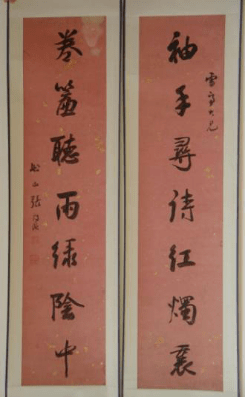 袖手尋詩紅燭裏
大兄
卷簾聽雨綠陰中
張